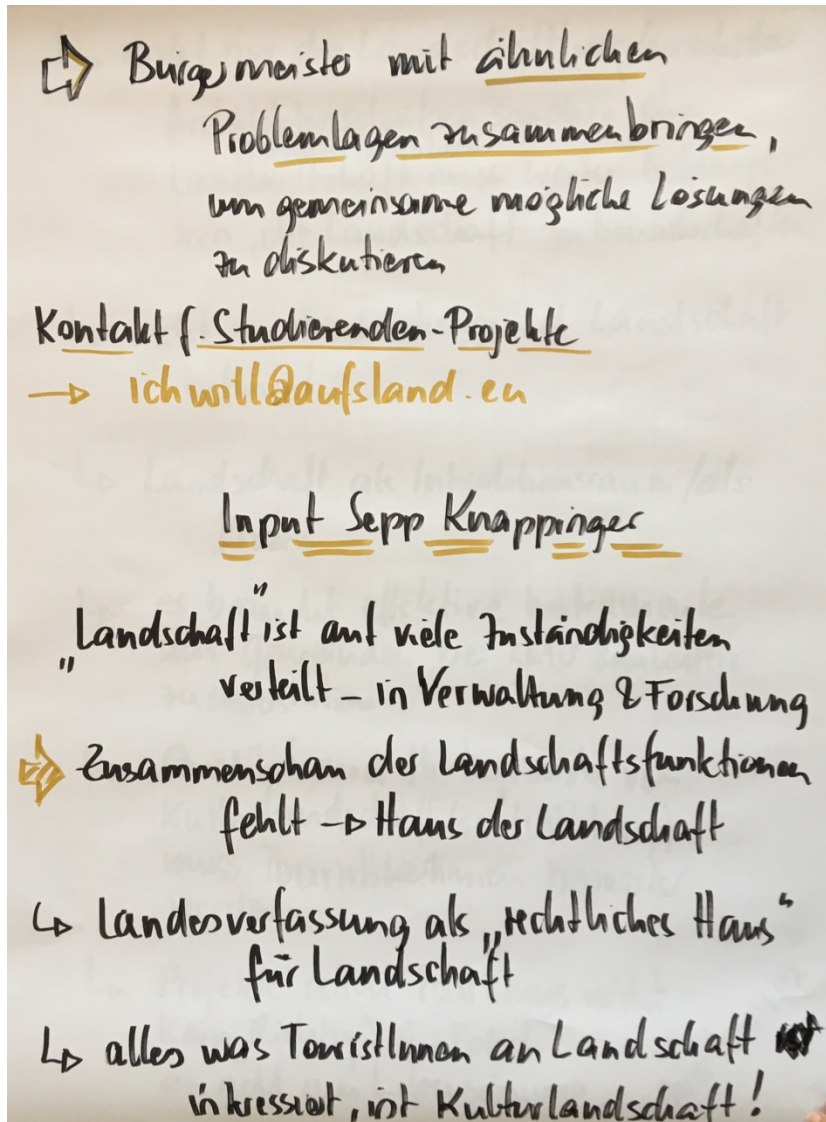 ⇨ Bürgermeister mit ähnlichen
Problemlagen zusammenbringen,
um gemeinsame mögliche Lösungen
zu diskutieren
Kontakt f. Studierenden-Projekte
→ ichwill@aufsland.eu
Input Sepp Knappinger
"Landschaft" ist auf viele Zuständigkeiten
verteilt – in Verwaltung & Forschung
⇨ Zusammenschau der Landschaftsfunktionen
fehlt → Haus der Landschaft
↳ Landesverfassung als „rechtliches Haus"
für Landschaft
↳ alles was TouristInnen an Landschaft
interessiert, ist Kulturlandschaft!